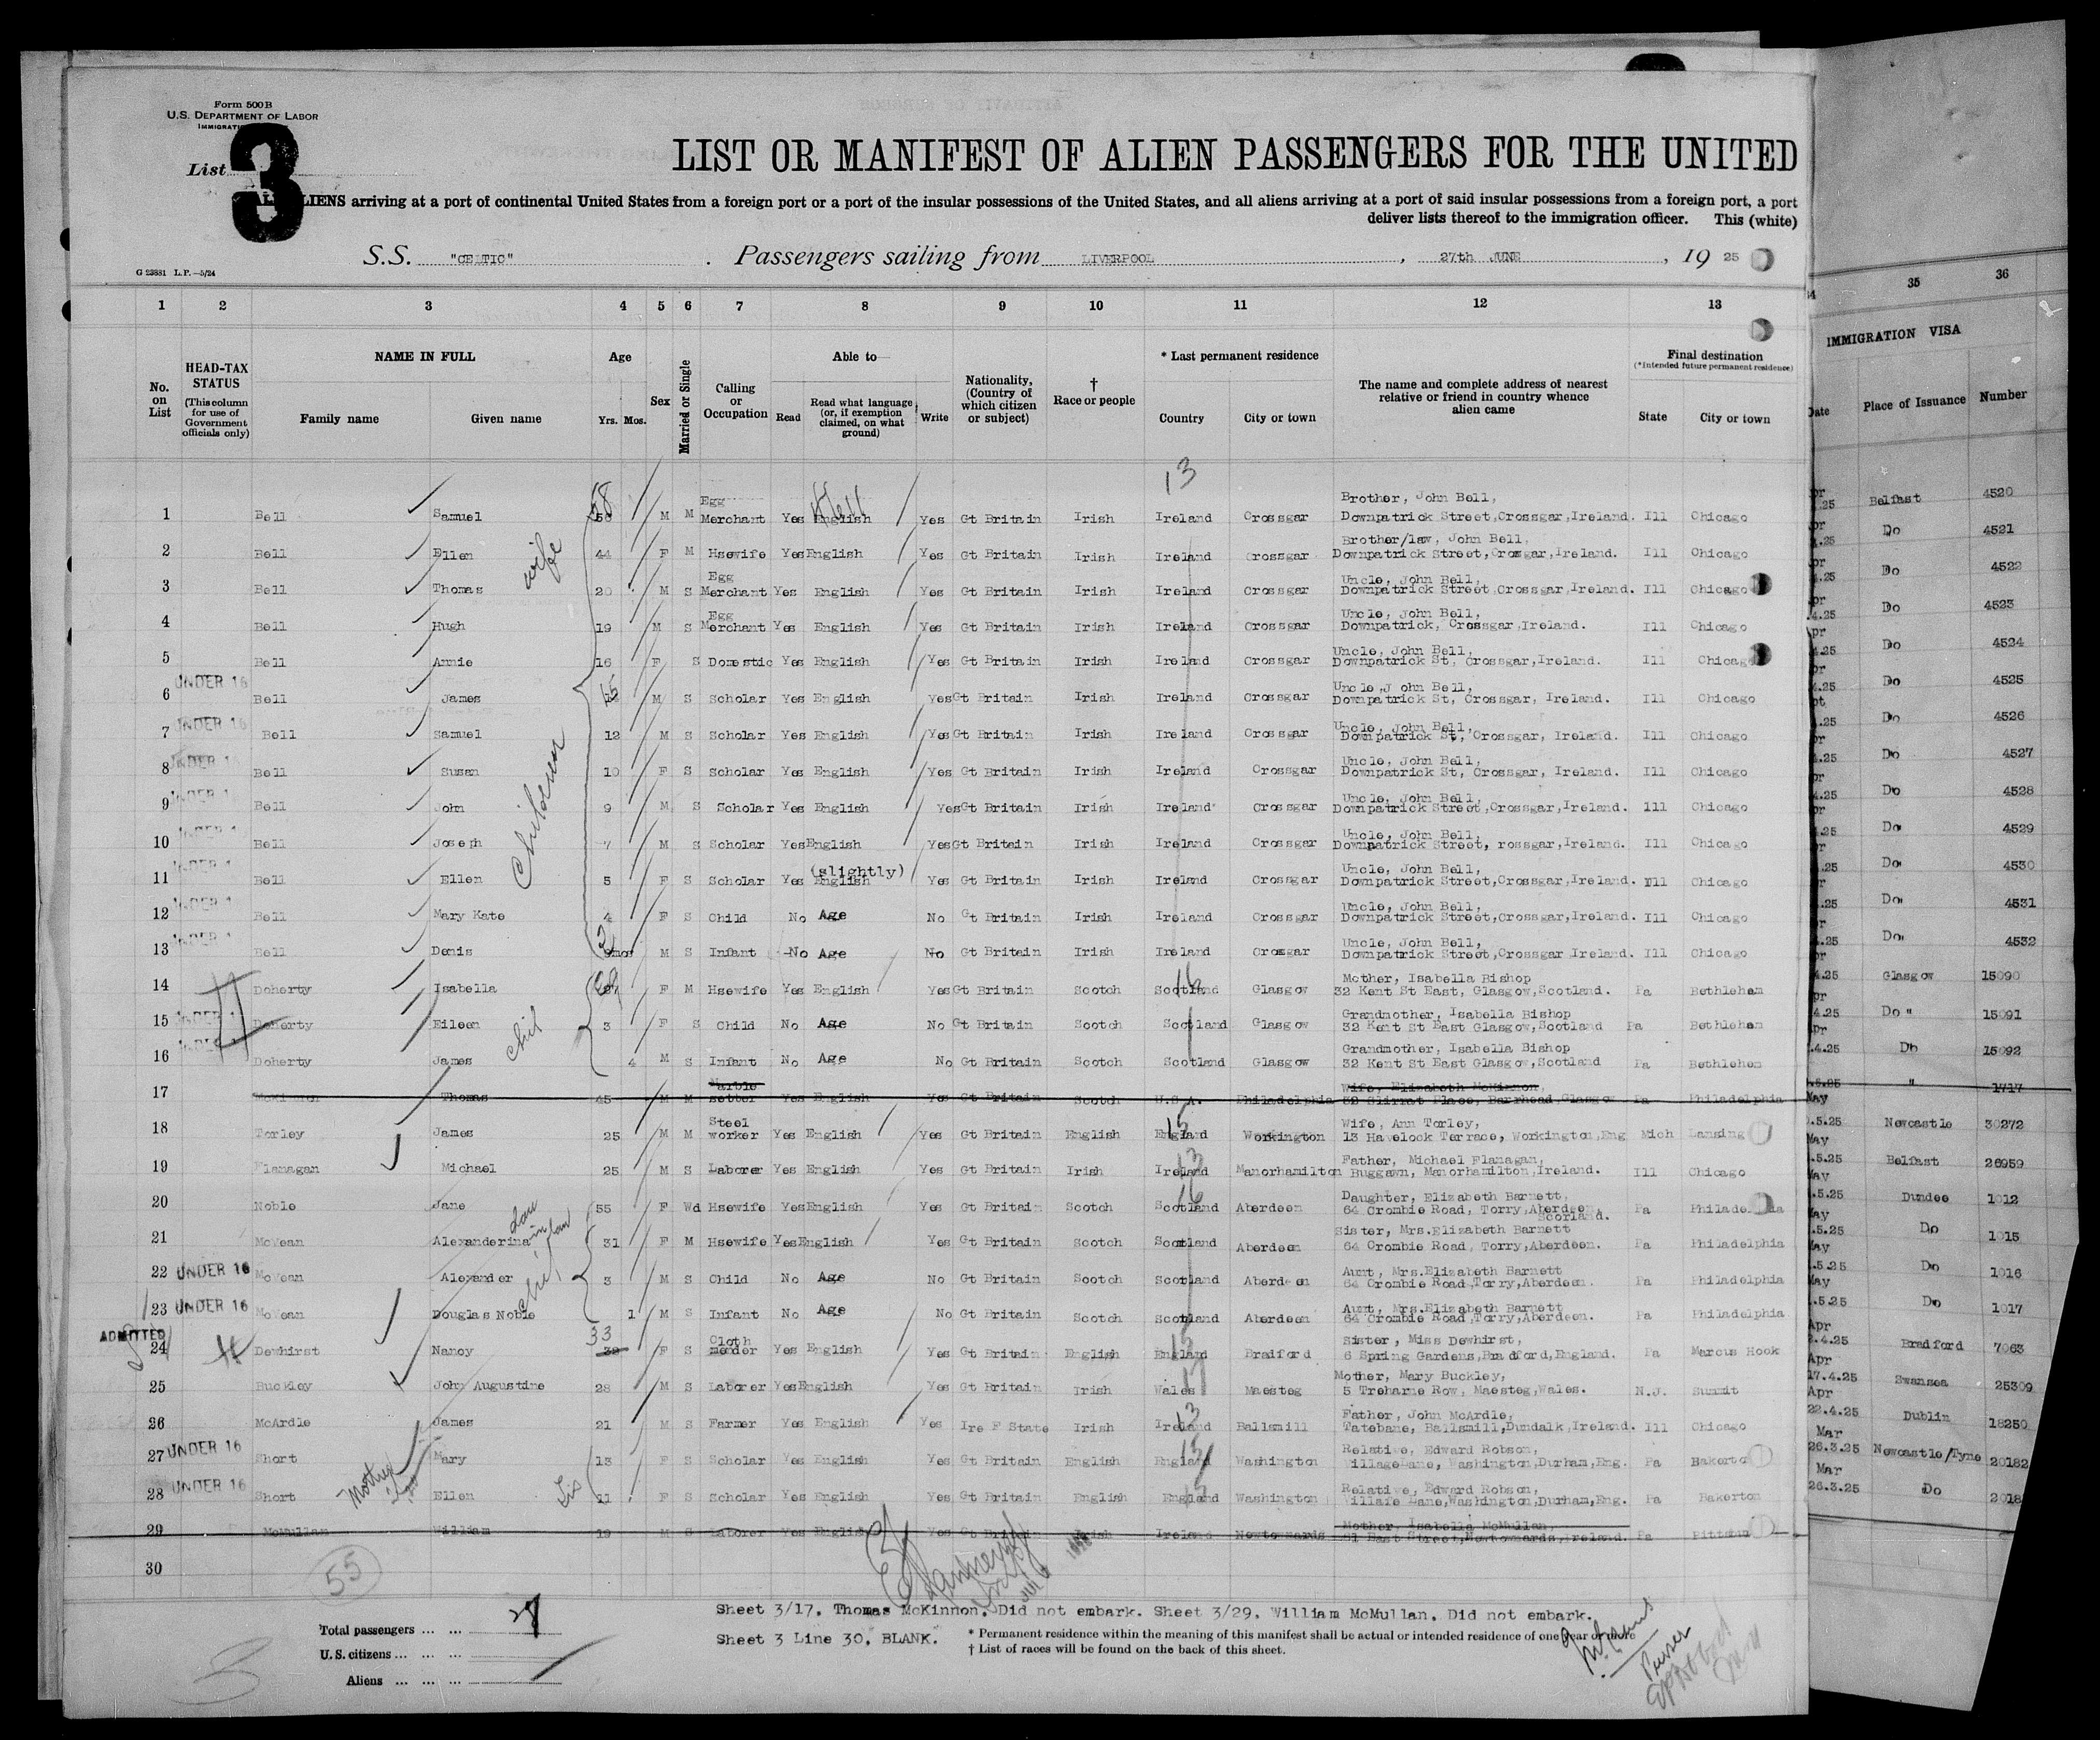 Form 500B
U.S. DEPARTMENT OF LABOR
List 3
LIST OR MANIFEST OF ALIEN PASSENGERS FOR THE UNITED
ALIENS arriving at a port of continental United States from a foreign port or a port of the insular possessions of the United States, and all aliens arriving at a port of said insular possessions from a foreign port, a port
deliver lists thereof to the immigration officer. This (white)
S.S. "CELTIC" . Passengers sailing from LIVERPOOL , 27th JUNE , 19 25
G 23881 L.P.—5/24
1 2 3 4 5 6 7 8 9 10 11 12 13 35 36
IMMIGRATION VISA
No. on List
HEAD-TAX STATUS (This column for use of Government officials only)
NAME IN FULL Family name Given name
Age Yrs. Mos.
Sex
Married or Single
Calling or Occupation
Able to Read Read what language (or, if exemption claimed, on what ground) Write
Nationality, (Country of which citizen or subject)
† Race or people
* Last permanent residence Country City or town
The name and complete address of nearest relative or friend in country whence alien came
Final destination (*Intended future permanent residence) State City or town
Date Place of Issuance Number
13
1 Bell Samuel M M Egg Merchant Yes English Yes Gt Britain Irish Ireland Crossgar Brother, John Bell, Downpatrick Street,Crossgar,Ireland. Ill Chicago Belfast 4520
wife
2 Bell Ellen 44 F M Hsewife Yes English Yes Gt Britain Irish Ireland Crossgar Brother/law, John Bell, Downpatrick Street, Crossgar,Ireland. Ill Chicago Do 4521
3 Bell Thomas 20 M S Egg Merchant Yes English Yes Gt Britain Irish Ireland Crossgar Uncle, John Bell, Downpatrick Street Crossgar,Ireland. Ill Chicago Do 4522
4 Bell Hugh 19 M S Egg Merchant Yes English Yes Gt Britain Irish Ireland Crossgar Uncle, John Bell, Downpatrick, Crossgar,Ireland. Ill Chicago Do 4523
5 Bell Annie 16 F S Domestic Yes English Yes Gt Britain Irish Ireland Crossgar Uncle, John Bell, Downpatrick St, Crossgar,Ireland. Ill Chicago Do 4524
6 UNDER 16 Bell James 15 M S Scholar Yes English Yes Gt Britain Irish Ireland Crossgar Uncle,J ohn Bell, Downpatrick St, Crossgar, Ireland. Ill Chicago Do 4525
7 UNDER 16 Bell Samuel 12 M S Scholar Yes English Yes Gt Britain Irish Ireland Crossgar Uncle, John Bell, Downpatrick St, Crossgar, Ireland. Ill Chicago Do 4526
Children
8 Bell Susan 10 F S Scholar Yes English Yes Gt Britain Irish Ireland Crossgar Uncle, John Bell, Downpatrick St, Crossgar, Ireland. Ill Chicago Do 4527
9 Bell John 9 M S Scholar Yes English Yes Gt Britain Irish Ireland Crossgar Uncle, John Bell, Downpatrick Street,Crossgar,Ireland. Ill Chicago Do 4528
10 Bell Joseph 7 M S Scholar Yes English Yes Gt Britain Irish Ireland Crossgar Uncle, John Bell, Downpatrick Street, rossgar,Ireland. Ill Chicago Do 4529
11 Bell Ellen 5 F S Scholar Yes (slightly) English Yes Gt Britain Irish Ireland Crossgar Uncle, John Bell, Downpatrick Street,Crossgar,Ireland. Ill Chicago Do 4530
12 Bell Mary Kate 4 F S Child No Age No Gt Britain Irish Ireland Crossgar Uncle, John Bell, Downpatrick Street,Crossgar,Ireland. Ill Chicago Do 4531
13 Bell Denis 2 M S Infant No Age No Gt Britain Irish Ireland Crossgar Uncle, John Bell, Downpatrick Street,Crossgar Ireland. Ill Chicago Do 4532
14 Doherty Isabella F M Hsewife Yes English Yes Gt Britain Scotch Scotland Glasgow Mother, Isabella Bishop 32 Kent St East, Glasgow,Scotland. Pa Bethlehem Glasgow 15090
15 Doherty Eileen 3 F S Child No Age No Gt Britain Scotch Scotland Glasgow Grandmother, Isabella Bishop 32 Kent St East Glasgow,Scotland Pa Bethlehem Do 15091
16 Doherty James 4 M S Infant No Age No Gt Britain Scotch Scotland Glasgow Grandmother, Isabella Bishop 32 Kent St East Glasgow,Scotland Pa Bethlehem Do 15092
17 McKinnon Thomas 45 M M Marble setter Yes English Yes Gt Britain Scotch U.S.A. Philadelphia Wife, Elizabeth McKinnon, Barrhead Glasgow Pa Philadelphia " 1717
18 Torley James 25 M M Steel worker Yes English Yes Gt Britain English England Workington Wife, Ann Torley, 13 Havelock Terrace, Workington,Eng Mich Lansing Newcastle 30272
19 Flanagan Michael 25 M S Laborer Yes English Yes Gt Britain Irish Ireland Manorhamilton Father, Michael Flanagan, Buggawn, Manorhamilton,Ireland. Ill Chicago Belfast 26959
20 Noble Jane 55 F Wd Hsewife Yes English Yes Gt Britain Scotch Scotland Aberdeen Daughter, Elizabeth Barnett, 64 Crombie Road, Torry,Aberdeen, Scorland. Pa Philadelphia Dundee 1012
21 McVean Alexanderina 31 F M Hsewife Yes English Yes Gt Britain Scotch Scotland Aberdeen Sister, Mrs.Elizabeth Barnett 64 Crombie Road, Torry,Aberdeen. Pa Philadelphia Do 1015
22 UNDER 16 McVean Alexander 3 M S Child No Age No Gt Britain Scotch Scotland Aberdeen Aunt, Mrs.Elizabeth Barnett 64 Crombie Road,Torry,Aberdeen. Pa Philadelphia Do 1016
23 UNDER 16 McVean Douglas Noble 1 M S Infant No Age No Gt Britain Scotch Scotland Aberdeen Aunt, Mrs.Elizabeth Barnett 64 Crombie Road,Torry,Aberdeen. Pa Philadelphia Do 1017
ADMITTED
24 Dewhirst Nancy 33 F S Cloth mender Yes English Yes Gt Britain English England Bradford Sister, Miss Dewhirst, 6 Spring Gardens,Bradford,England. Pa Marcus Hook Bradford 7063
25 Buckley John Augustine 28 M S Laborer Yes English Yes Gt Britain Irish Wales Maesteg Mother, Mary Buckley, 5 Treharne Row, Maesteg,Wales. N.J. Summit 17.4.25 Swansea 25309
26 McArdle James 21 M S Farmer Yes English Yes Ire F State Irish Ireland Ballsmill Father, John McArdle, Tatebane, Ballsmill,Dundalk,Ireland. Ill Chicago 22.4.25 Dublin 18250
27 UNDER 16 Short Mary 13 F S Scholar Yes English Yes Gt Britain English England Washington Relative, Edward Robson, VillageLane, Washington,Durham,Eng. Pa Bakerton 26.3.25 Newcastle/Tyne 20182
28 UNDER 16 Short Ellen 11 F S Scholar Yes English Yes Gt Britain English England Washington Relative, Edward Robson, Villaife Lane,Washington,Durham,Eng. Pa Bakerton 26.3.25 Do 2018
29 McMullan William 19 M S Laborer Yes English Yes Gt Britain Irish Ireland Newtownards Mother, Isabella McMullan, 51 East Street,Newtownards,Ireland. Pa
30
55
Sheet 3/17. Thomas McKinnon. Did not embark. Sheet 3/29. William McMullan. Did not embark.
Sheet 3 Line 30, BLANK.
* Permanent residence within the meaning of this manifest shall be actual or intended residence of one year or more
† List of races will be found on the back of this sheet.
Total passengers ... ... 27
U.S. citizens ... ... ...
Aliens ... ... ...
Purser